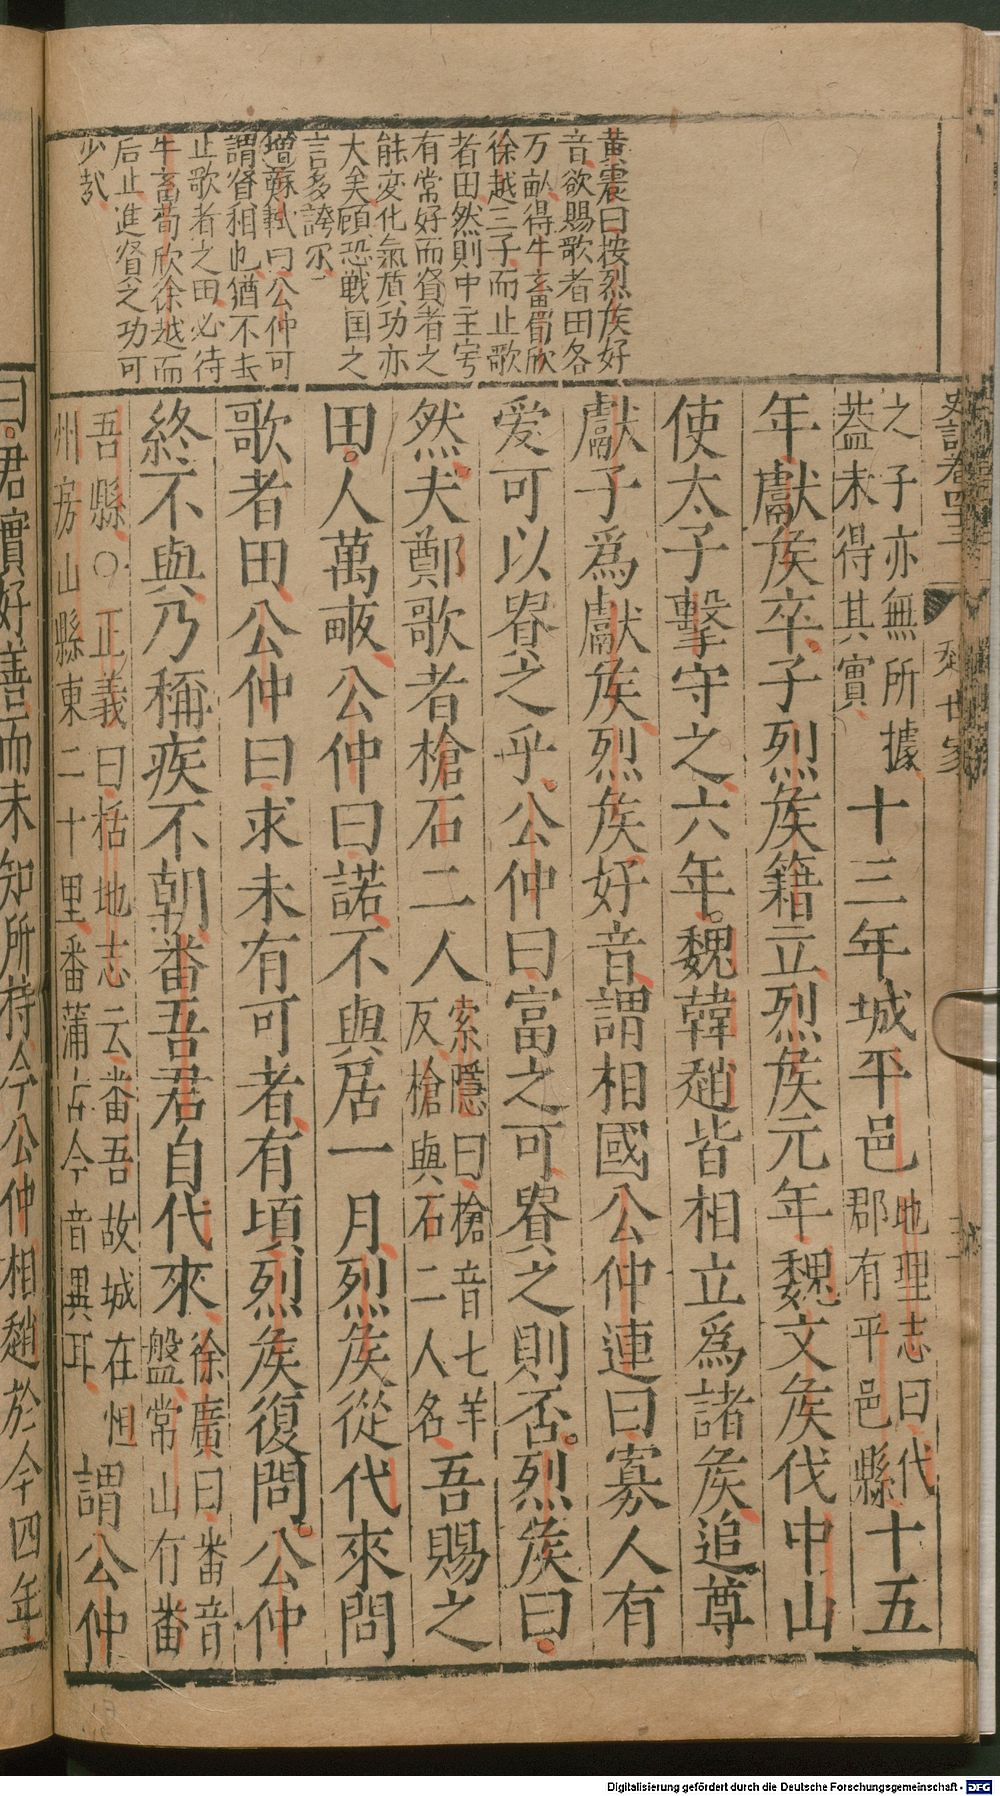 黄震曰按烈侯好
音欲賜歌者田各
万畝得牛畜荀欣
徐越三子而止歌
者田然則中主寄
有常好而賢者之
能变化氣质功亦
大矣顧恐戦国之
言多誇尔
增蘇軾曰公仲可
謂賢相也猶不去
止歌者之田必待
牛畜荀欣徐越而
后止進賢之功可
少㢤
史記卷四三
趙世家
之子亦無所據
葢未得其實
十三年城平邑
地理志曰代
郡有平邑縣
十五
年獻侯卒子烈侯籍立烈侯元年魏文侯伐中山
使太子擊守之六年魏韓趙皆相立爲諸侯追尊
獻子爲獻侯烈侯好音謂相國公仲連曰寡人有
爱可以貴之乎公仲曰富之可貴之則否烈侯曰
然夫鄭歌者槍石二人
索隱曰槍音七羊
反槍與石二人名
吾賜之
田人萬畞公仲曰諾不與居一月烈侯從代來問
歌者田公仲曰求未有可者有頃烈侯復問公仲
終不與乃稱疾不朝番吾君自代來
徐廣曰番音
盤常山有番
吾縣○正義曰括地志云番吾故城在恒
州房山縣東二十里番蒲古今音異耳
謂公仲
曰君實好善而未知所持今公仲相趙於今四年
Digitalisierung gefördert durch die Deutsche Forschungsgemeinschaft - DFG